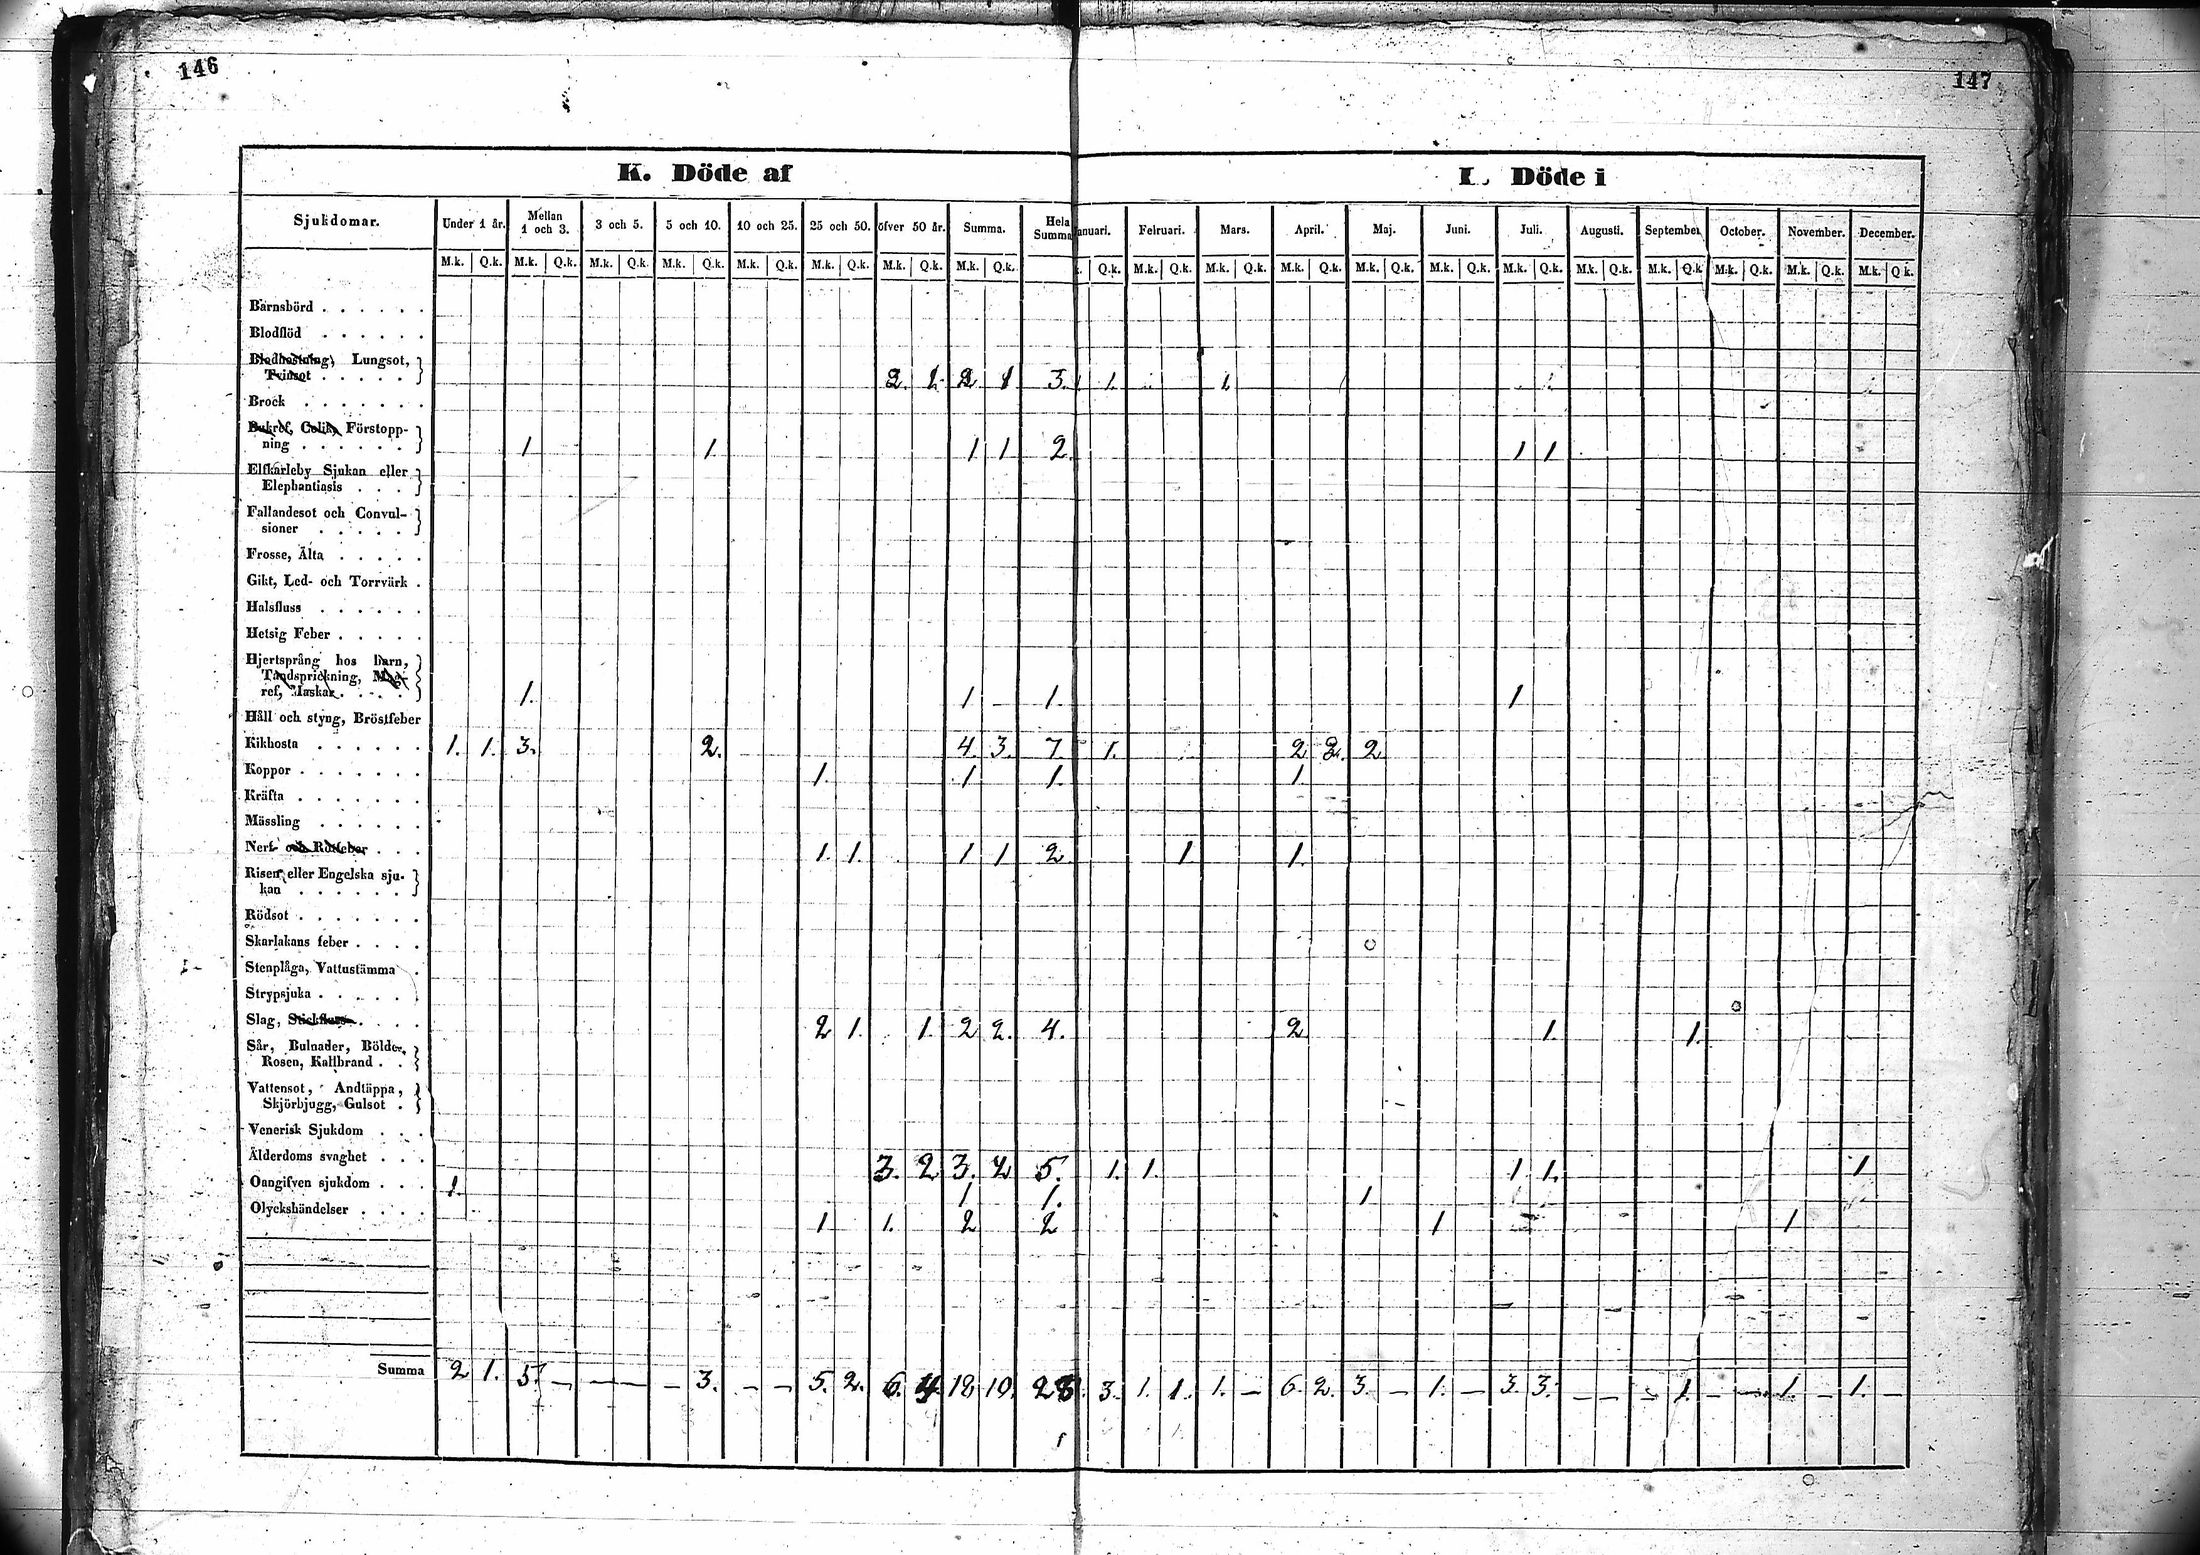 146
147
K. Döde af
L. Döde i
Sjukdomar. Under 1 år. Mellan 1 och 3. 3 och 5. 5 och 10. 10 och 25. 25 och 50. öfver 50 år. Summa. Hela Summa anuari. Februari. Mars. April. Maj. Juni. Juli. Augusti. September October. November. December.
M.k. Q.k. M.k. Q.k. M.k. Q.k. M.k. Q.k. M.k. Q.k. M.k. Q.k. M.k. Q.k. M.k. Q.k. k. Q.k. M.k. Q.k. M.k. Q.k. M.k. Q.k. M.k. Q.k. M.k. Q.k. M.k. Q.k. M.k. Q.k. M.k. Q.k M.k. Q.k. M.k. Q.k. M.k. Q.k.
Barnsbörd . . . . . .
Blodflöd . . . . . .
Blodhostning, Lungsot,
Tvinsot . . . . . 2. 1. 2 1 3. 1. 1.
Brock . . . . . . .
Bukref, Colik, Förstopp-
ning . . . . . . 1 1. 1 1 2. 1 1
Elfkarleby Sjukan eller
Elephantiasis . . .
Fallandesot och Convul-
sioner . . . . .
Frosse, Älta . . . . .
Gikt, Led- och Torrvärk .
Halsfluss . . . . . .
Hetsig Feber . . . . .
Hjertsprång hos barn,
Tandsprickning, Mag-
ref, Maskar . . . . 1. 1 1. 1
Håll och styng, Bröstfeber
Kikhosta . . . . . . 1. 1. 3. 2. 4. 3. 7. 1. 2 2. 2
Koppor . . . . . . . 1. 1 1. 1.
Kräfta . . . . . . .
Mässling . . . . . .
Nerf- och Rötfeber . . . 1. 1. 1 1 2 1 1.
Risen eller Engelska sju-
kan . . . . . .
Rödsot . . . . . . .
Skarlakans feber . . . .
Stenplåga, Vattustämma .
Strypsjuka . . . . .
Slag, Stickfluss . . . . 2 1. 1. 2 2. 4. 2 1. 1.
Sår, Bulnader, Bölder,
Rosen, Kallbrand . .
Vattensot, Andtäppa,
Skjörbjugg, Gulsot .
Venerisk Sjukdom . . .
Älderdoms svaghet . . . 3. 2 3. 2 5. 1. 1. 1 1. 1
Oangifven sjukdom . . . 1. 1 1. 1
Olyckshändelser . . . . 1 1. 2 2 1 1
Summa 2 1. 5. — — — — 3. — — 5. 2. 6. 4 18 10. 28 3. 1. 1. 1. — 6. 2. 3. — 1. — 3. 3. — — — 1. — — 1. — 1. —